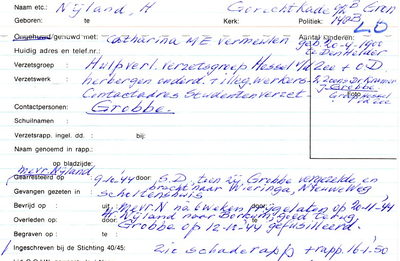 Naam etc.: Nijland, H Gerechtkade 47B Gron
Geboren: te Kerk: Politiek: 1472B
20
Ongehuwd/gehuwd met: Catharina M E Vermeulen Aantal kinderen:
geb 20-4-1900
Huidig adres en telef.nr.: te Den Helder
Verzetsgroep : Hulpverl. verzetsgroep Hessel v/d Zee + O.D.
Verzetswerk : herbergen onderd. + illeg. werkers
Contactadres Studentenverzet
Contactpersonen: Grobbe.
Grobbe
Schuilnaam :
Verzetsrapp. ingel. dd. : bij:
Naam genoemd in rapp.:
op bladzijde:
mevr. Nijland
Gearresteerd op : 9-12-'44 door: S.D., toen zij Grobbe vergezelde en
bracht naar Wieringa, Nieuweweg
Gevangen gezeten in : Scholtenshuis
Bevrijd op : uit: mevr. N na 6 weken vrijgelaten op 20-11-'44
Overleden op: door: H. Nijland naar Borkum, goed terug,
Begraven op : te: Grobbe op 12-12-'44 gefusilleerd.
Ingeschreven bij de Stichting 40/45: zie schaderapp + rapp. 16-1-'50